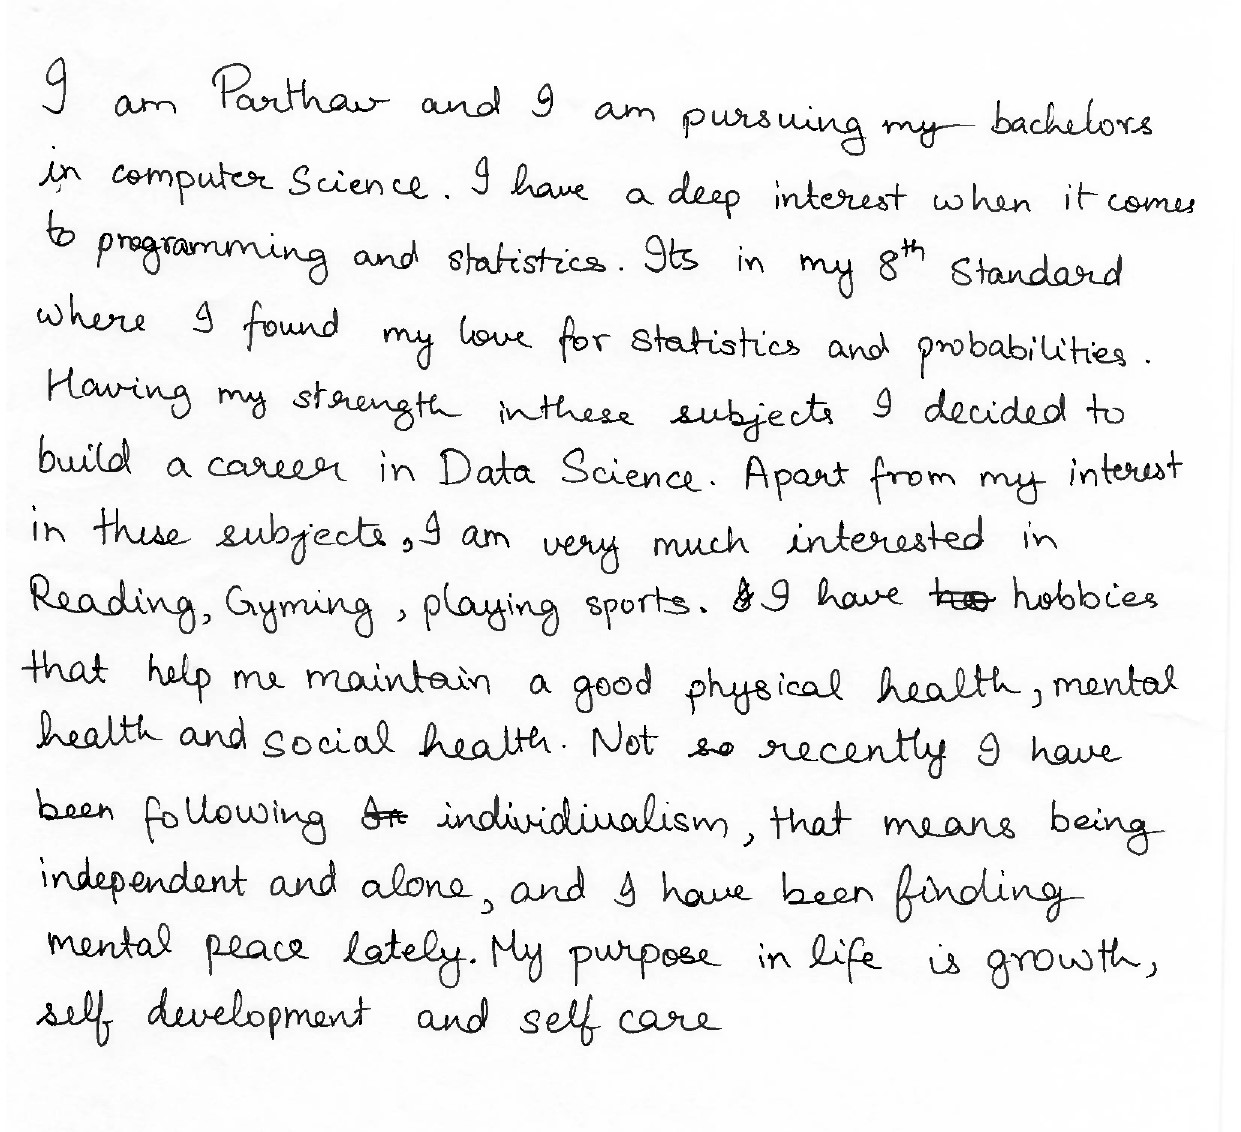 I am Parthav and I am pursuing my bachelors
in computer Science. I have a deep interest when it comes
to programming and statistics. Its in my 8th Standard
where I found my love for statistics and probabilities.
Having my strength in these subjects I decided to
build a career in Data Science. Apart from my interest
in these subjects, I am very much interested in
Reading, Gyming, playing sports. I have hobbies
that help me maintain a good physical health, mental
health and social health. Not so recently I have
been following individiualism, that means being
independent and alone, and I have been finding
mental peace lately. My purpose in life is growth,
self development and self care